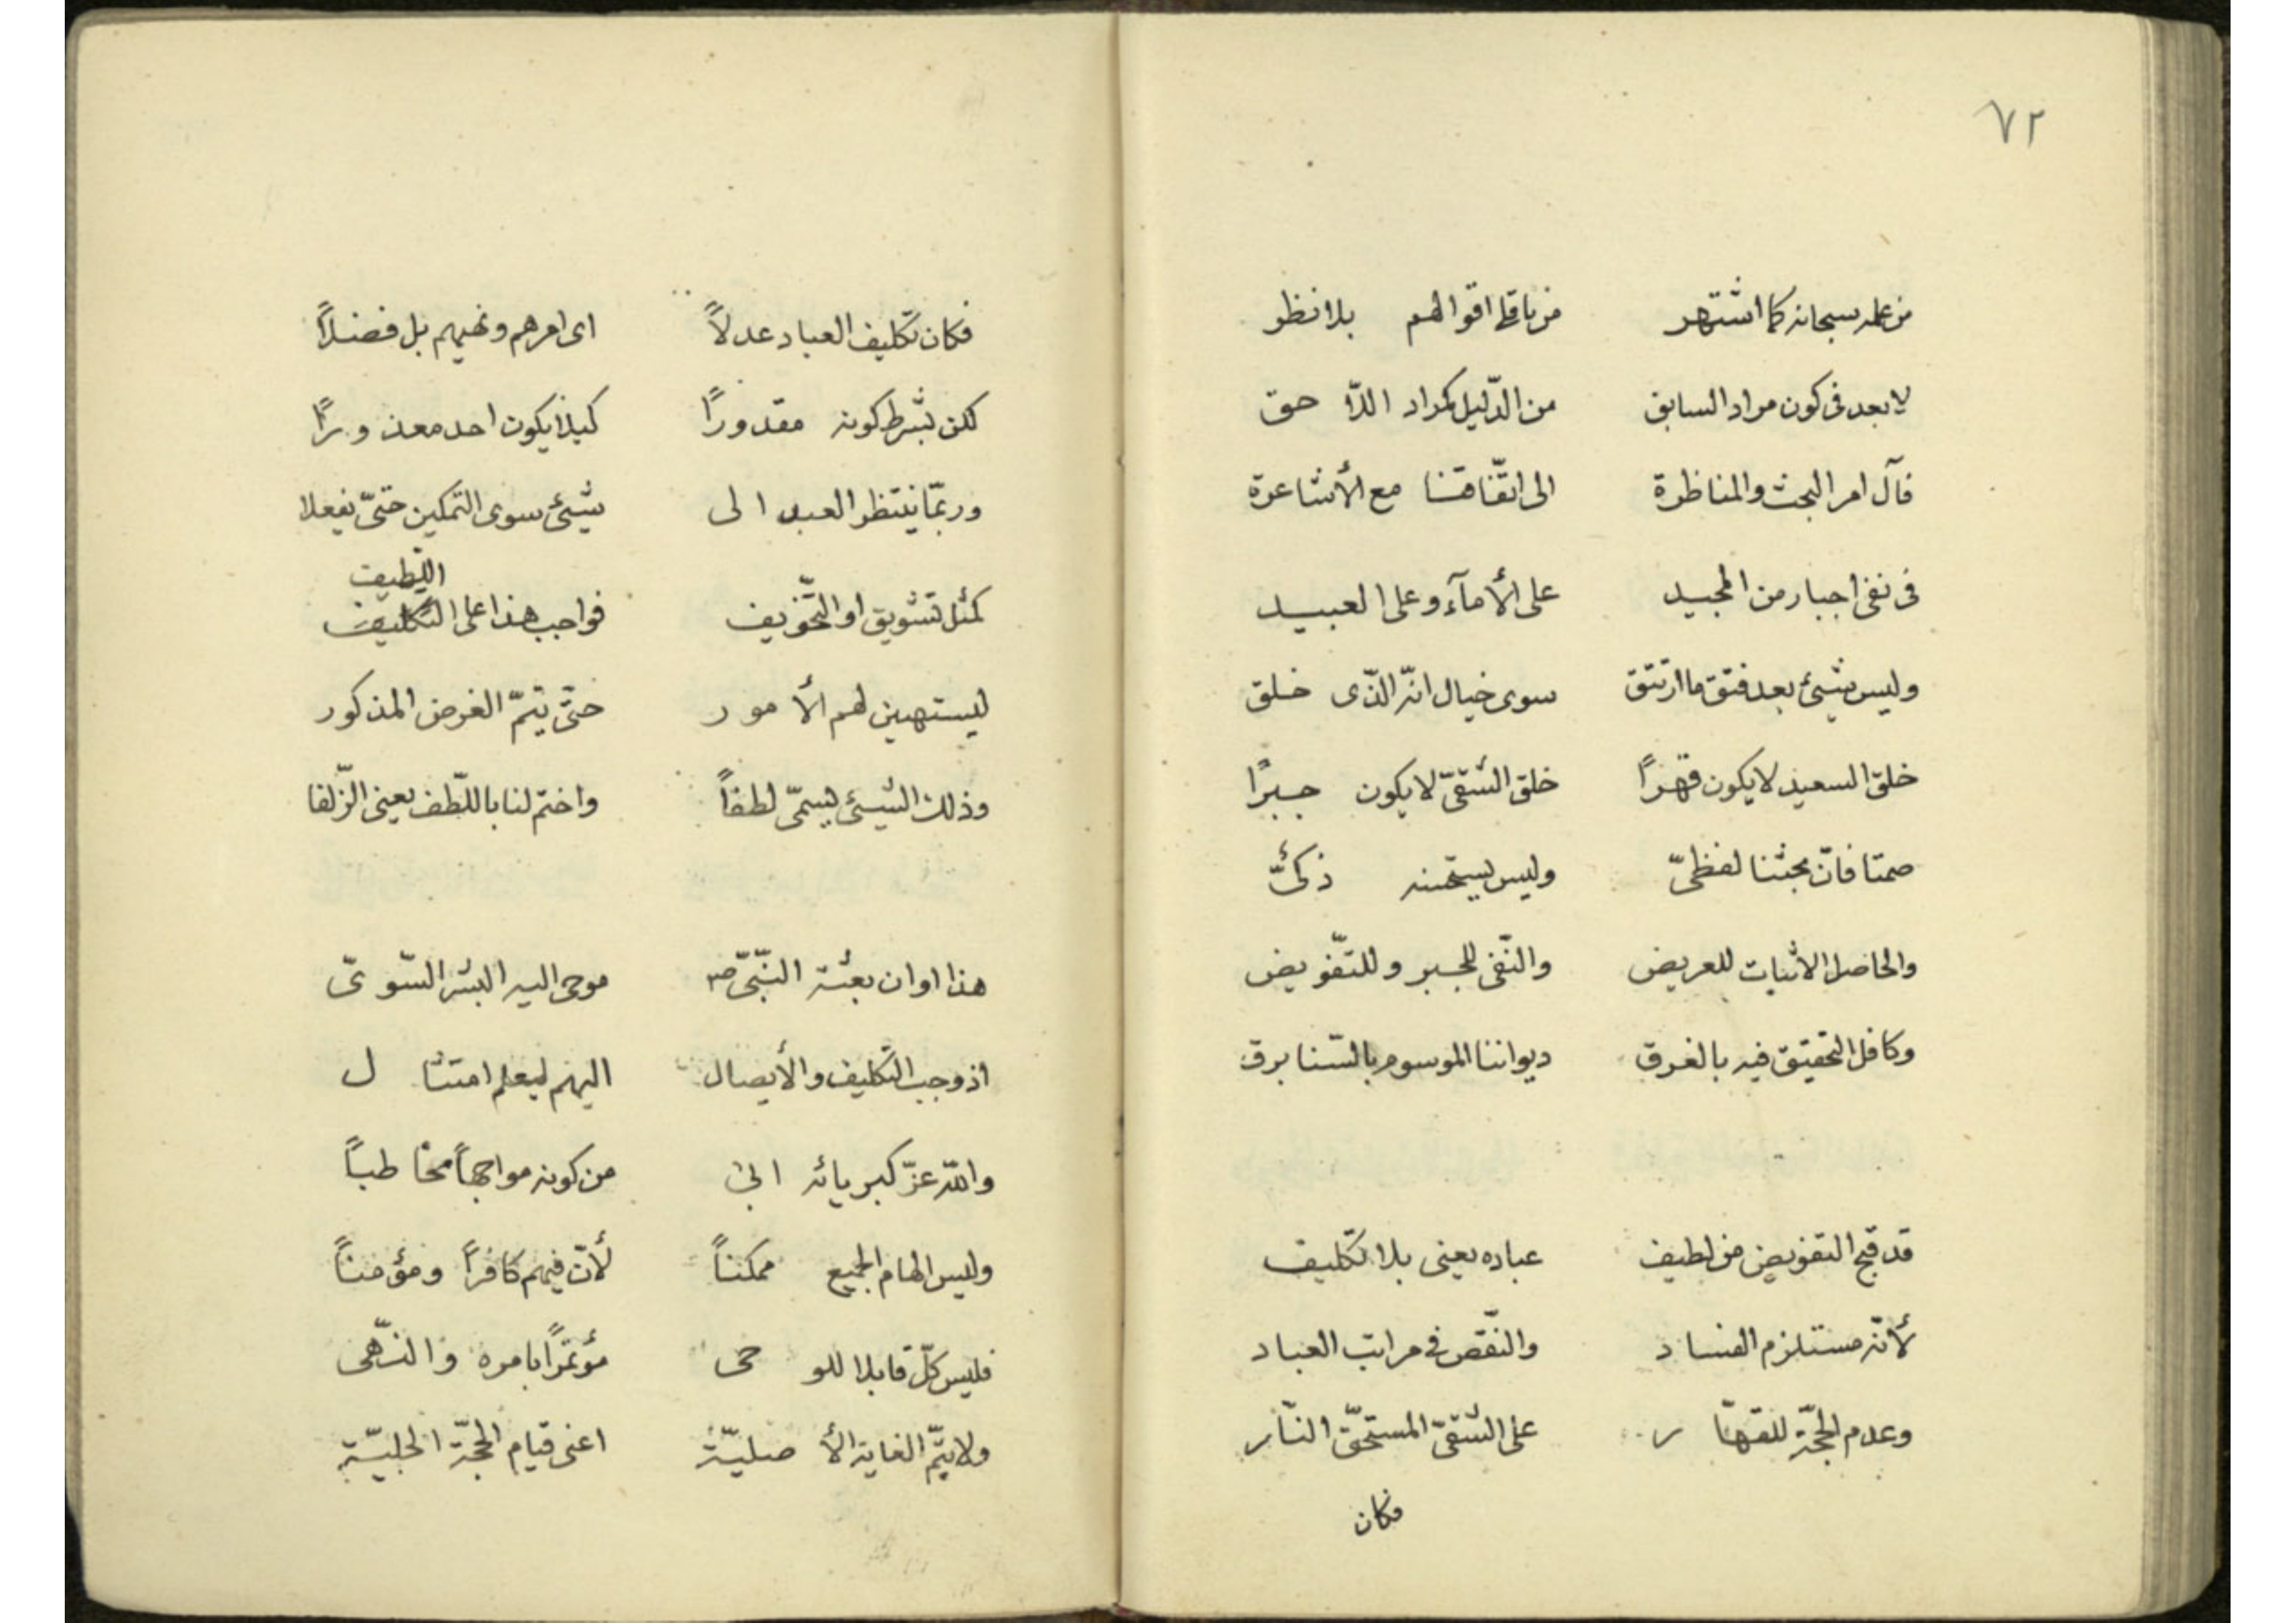 ٧٢
من علمه سبحانه كما اشتهر من باقى اقوالهم بلا نظر
لا بعد فى كون مراد السابق من الدّليل كمراد اللّا حق
فآل امر البحث والمناظرة الى اتّفاقنا مع الأشاعرة
فى نفى اجبار من المجيد على الأمآء وعلى العبيد
وليس شيئ بعد فتق ما ارتتق سوى خيال انّه الّذى خلق
خلق السعيد لا يكون قهراً خلق الشّقىّ لا يكون جبراً
صمتا فانّ بحثنا لفظىّ وليس يستحسنه ذكىّ
والحاصل الاثبات للعريض والنّفى للجبر وللتّفويض
وكافل التحقيق فيه بالغرق ديواننا الموسوم بالسّنا برق
قد قبح التفويض من لطيف عباده يعنى بلا تكليف
لأنّه مستلزم الفساد والنّقص فى مراتب العباد
وعدم الحجّة للقهّا ر على الشّقىّ المستحقّ النّار
فكان
فكان تكليف العباد عدلاً اى امرهم ونهيهم بل فضلاً
لكن بشرط كونه مقدوراً كيلا يكون احد معذوراً
وربّما ينتظر العبد الى شيئ سوى التمكين حتّى يفعلا
كمثل تشويق او التّخويف فواجب هذا على التكليف
اللّطيف
ليستهين لهم الأ مور حتّى يتمّ الغرض المذكور
وذلك الشيئ يسمّى لطفاً واختم لنا باللّطف يعنى الزّلفا
هذا اوان بعثة النّبىّ ص موحى اليه البشر السّوىّ
اذ وجب التكليف والأيصال اليهم ليعلم امتثا ل
واللّه عزّ كبريائه ابى من كونه مواجهاً مخا طباً
وليس الهام الجميع ممكناً لأنّ فيهم كافراً ومؤمناً
فليس كلّ قابلا للو حى مؤتمراً بامره والنّهى
ولا يتمّ الغاية الأ صليّة اعنى قيام الحجّة الجليّة